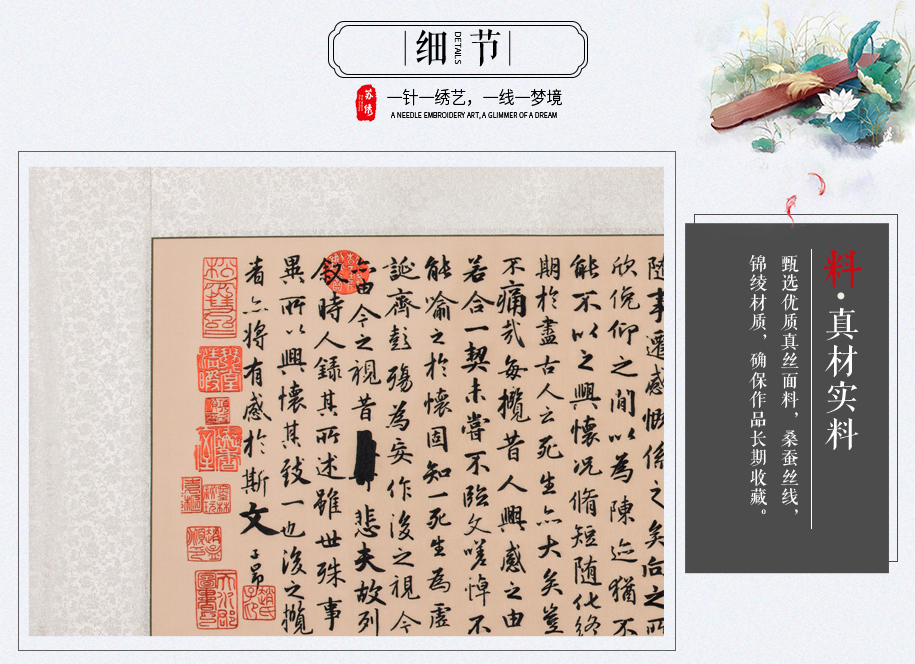 细节
DETAILS
苏绣
一针一绣艺，一线一梦境
A NEEDLE EMBROIDERY ART, A GLIMMER OF A DREAM
料·真材实料
甄选优质真丝面料，桑蚕丝线，
锦绫材质，确保作品长期收藏。
随事遷感慨係之矣向之所
欣俛仰之閒以為陳迹猶不
能不以之興懷况脩短随化終
期於盡古人云死生亦大矣豈
不痛哉每攬昔人興感之由
若合一契未嘗不臨文嗟悼不
能喻之於懷固知一死生為虛
誕齊彭殤為妄作後之視今
亦由今之視昔悲夫故列
叙時人録其所述雖世殊事
異所以興懷其致一也後之攬
者亦将有感於斯文
子昂